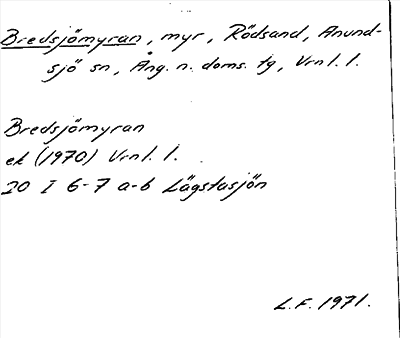 Bredsjömyran, myr, Rödsand, Anund-
sjö sn, Ång. n. doms. tg, Vrnl. l.
Bredsjömyran
ek (1970) Vrnl. l.
20 I 6-7 a-b Lägstasjön
L.F. 1971.